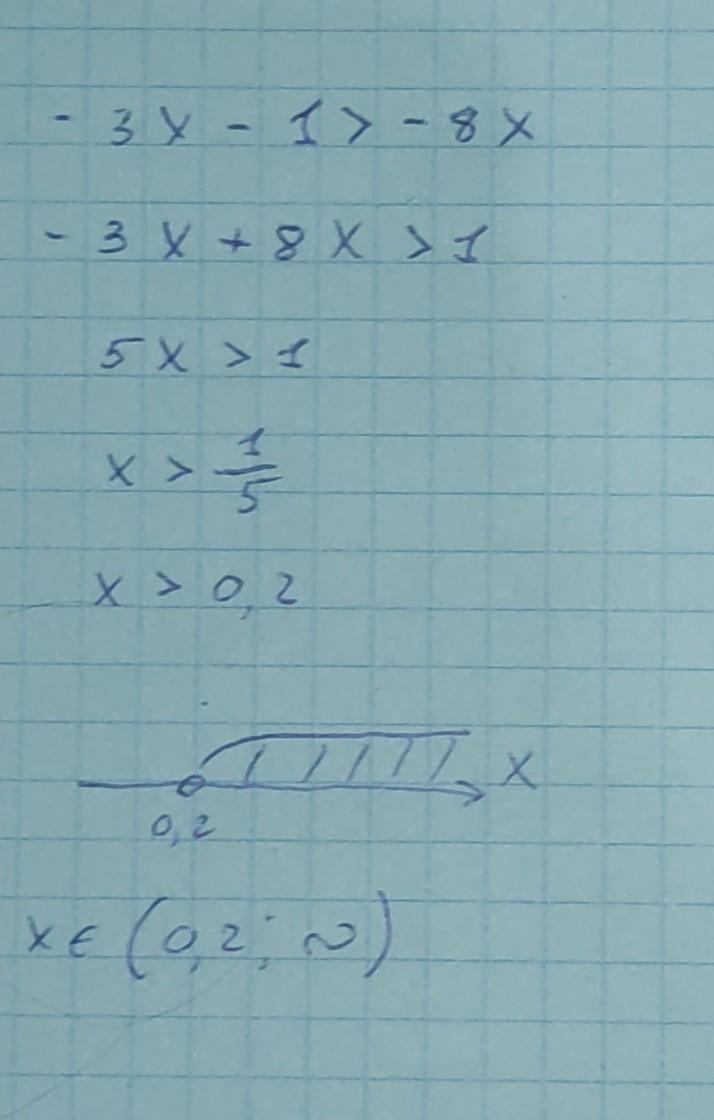 - 3x - 1 > - 8x
- 3x + 8x > 1
5x > 1
x > 1/5
x > 0,2
x
0,2
x ∈ (0,2; ∞)